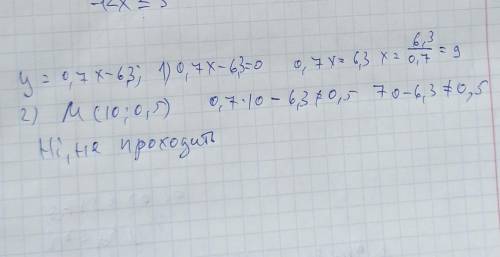 -12x = 3
y = 0,7x-6,3; 1) 0,7x-6,3=0 0,7x=6,3 x=6,3/0,7=9
2) M(10;0,5) 0,7·10-6,3≠0,5 70-6,3≠0,5
Ні, не проходить